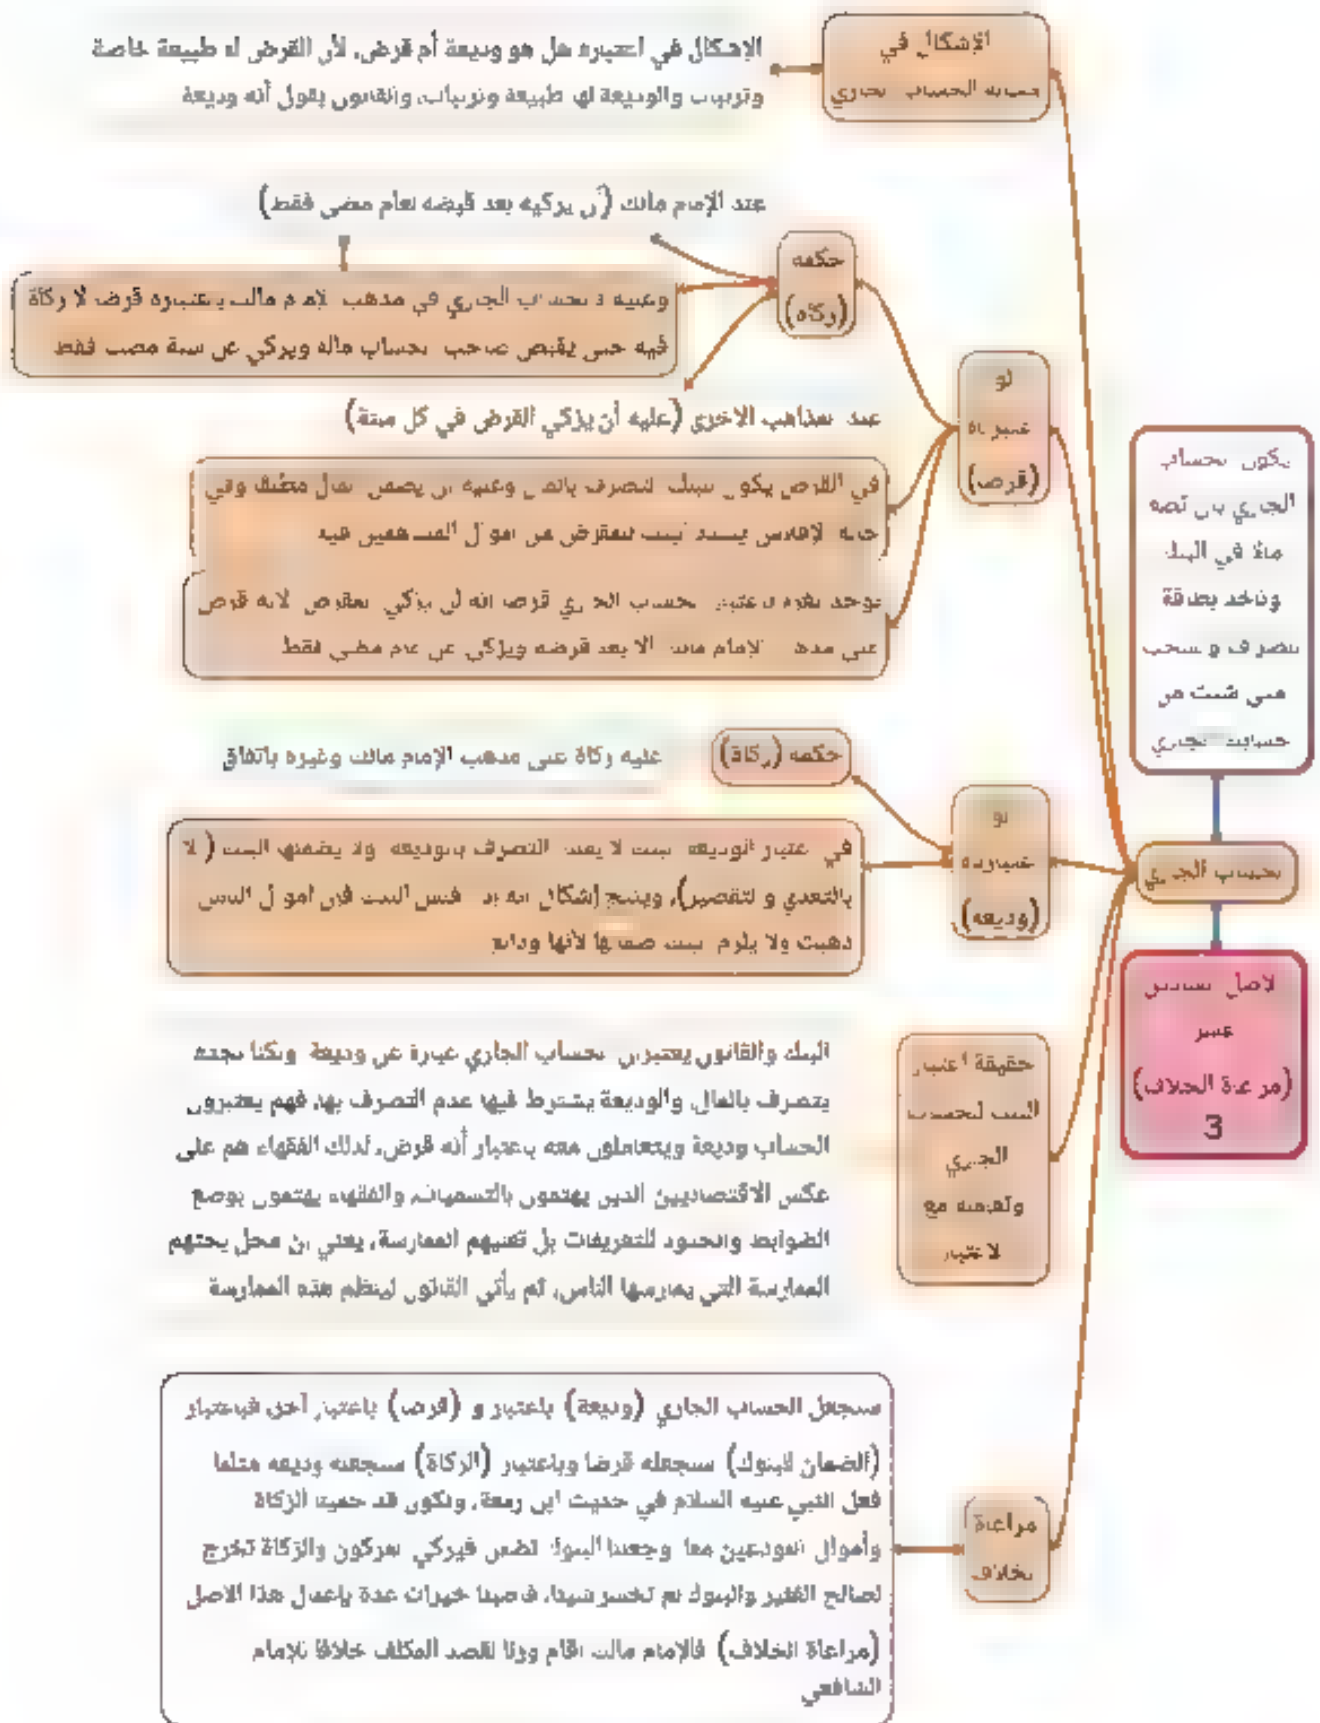 الإشكال في
حسابه الحساب الجاري
الإشكال في اعتباره هل هو وديعة أم قرض، لأن القرض له طبيعة خاصة
وترتيبات والوديعة لها طبيعة وترتيبات، والقانون يقول أنه وديعة
لو
اعتبرناه
(قرض)
حكمه
(زكاة)
عند الإمام مالك (أن يزكيه بعد قبضه لعام مضى فقط)
وعليه فالحساب الجاري في مذهب الإمام مالك باعتباره قرض لا زكاة
فيه حتى يقبض صاحب الحساب ماله ويزكي عن سنة مضت فقط
عند المذاهب الاخرى (عليه أن يزكي القرض في كل سنة)
في القرض يكون للبنك التصرف بالمال وعليه أن يضمن المال مطلقا وفي
حالة الإفلاس يسدد البنك للمقرض من أموال المساهمين فيه
توجد ثغرة باعتبار الحساب الجاري قرضا أنه لن يزكي المقرض لأنه قرض
على مذهب الإمام مالك الا بعد قرضه ويزكي عن عام مضى فقط
يكون الحساب
الجاري بأن تضع
مالا في البنك
وتأخذ بطاقة
للصرف وتسحب
متى شئت من
حسابك الجاري
الحساب الجاري
الاصل السادس
عشر
(مراعاة الخلاف)
3
لو
اعتبرناه
(وديعة)
حكمه (زكاة)
عليه زكاة على مذهب الإمام مالك وغيره باتفاق
في اعتبار الوديعة البنك لا يملك التصرف بالوديعة ولا يضمنها البنك (إلا
بالتعدي والتقصير)، وينتج إشكال أنه إذا فلس البنك فإن أموال الناس
ذهبت ولا يلزم البنك ضمانها لأنها ودائع
حقيقة اعتبار
البنك للحساب
الجاري
وتعامله مع
الاعتبار
البنك والقانون يعتبران الحساب الجاري عبارة عن وديعة ولكنا نجده
يتصرف بالمال، والوديعة يشترط فيها عدم التصرف بها، فهم يعتبرون
الحساب وديعة ويتعاملون معه باعتبار أنه قرض، لذلك الفقهاء هم على
عكس الاقتصاديين الذين يهتمون بالتسميات، والفقهاء يهتمون بوضع
الضوابط والحدود للتعريفات بل تعنيهم الممارسة، يعني أن محل بحثهم
الممارسة التي يمارسها الناس، ثم يأتي القانون لينظم هذه الممارسة
مراعاة
الخلاف
سنجعل الحساب الجاري (وديعة) باعتبار و (قرضا) باعتبار آخر، فباعتبار
(الضمان للبنوك) سنجعله قرضا وباعتبار (الزكاة) سنجعله وديعة مثلما
فعل النبي عليه السلام في حديث ابن زمعة، ونكون قد حمينا الزكاة
وأموال المودعين معا وجعلنا البنوك تضمن فيزكي المزكون والزكاة تخرج
لصالح الفقير والبنوك لم تخسر شيئا، فأصبنا خيرات عدة بإعمال هذا الاصل
(مراعاة الخلاف) فالإمام مالك أقام وزنا لقصد المكلف خلافا للإمام
الشافعي